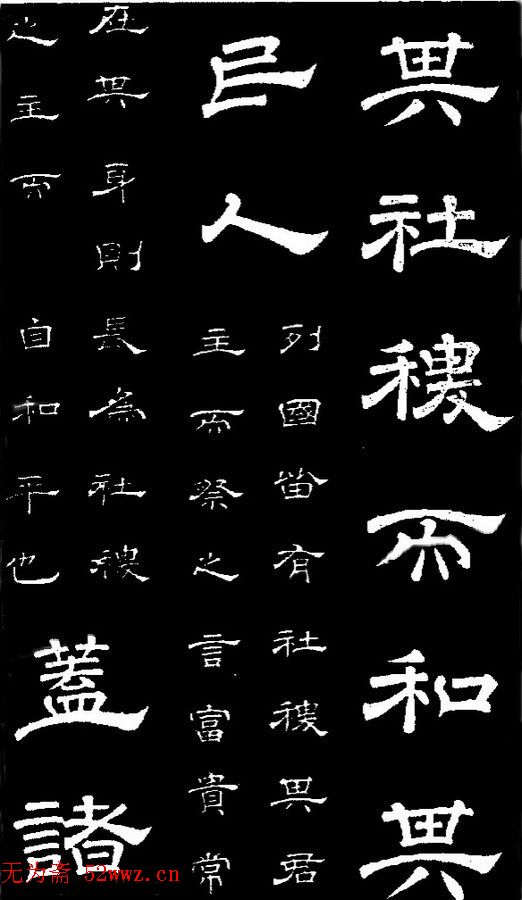 其社稷而和其
民人
列國皆有社稷其君
主而祭之言富貴常
在其身則長為社稷
之主而 自和平也
蓋諸
无为斋 52wwz.cn